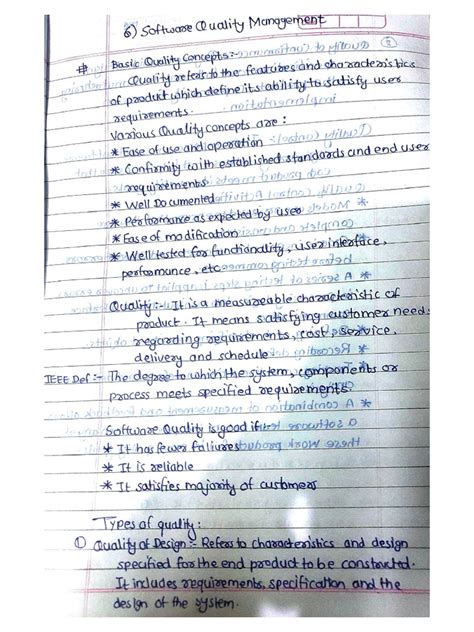 6) Software Quality Management
# Basic Quality Concepts:-
Quality refers to the features and characteristics
of product which define its ability to satisfy user
requirements.
Various Quality concepts are :
* Ease of use and operation
* Confirmity with established standards and end user
requirements
* Well Documented
* Performance as expected by user
* Ease of modification
* Well tested for functionality, user interface,
performance, etc.
Quality :- It is a measureable characteristic of
product. It means satisfying customer needs
regarding requirements, cost, service,
delivery and schedule
IEEE Def :- The degree to which the system, components or
process meets specified requirements.
Software Quality is good if
* It has fewer faliures
* It is reliable
* It satisfies majority of customers
Types of quality :
① Quality of Design :- Refers to characteristics and design
specified for the end product to be constructed.
It includes requirements, specification and the
design of the system.